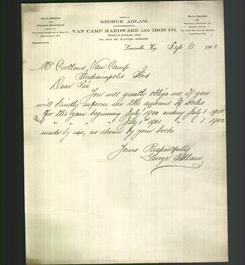 GEORGE ADLAM,
VAN CAMP HARDWARE AND IRON CO.
INDIANAPOLIS, IND.
Louisville, Ky. Sep 6 1902
Mr Cortland Van Camp
Indianapolis Ind
Dear Sir
You will greatly oblige me if you
will kindly inform me the amount of Sales
for the year beginning July 1900 ending July 1 1901
and " " " " July 1st 1901 " " 1 1902
made by me, as shown by your books
Yours Respectfully
George Adlam